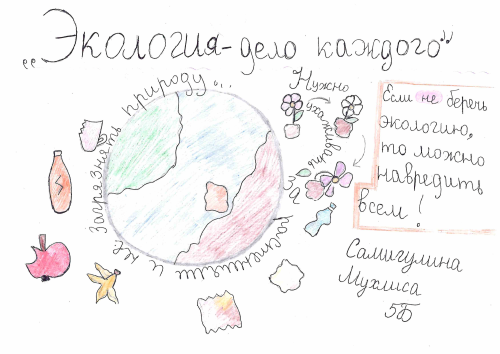 „Экология - дело каждого"
Нужно
ухаживать
за
растениями и не
загрязнять
природу...
Если не беречь
экологию,
то можно
навредить
всем!
Самигулина
Мухлиса
5Б